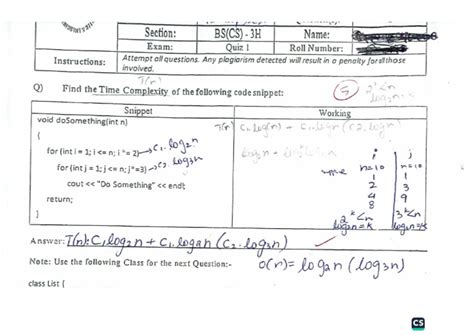 Section: BS(CS) - 3H Name:
Exam: Quiz 1 Roll Number:
Instructions: Attempt all questions. Any plagiarism detected will result in a penalty for all those involved.
T(n)
Q) Find the Time Complexity of the following code snippet: 5
Snippet Working
void doSomething(int n)
{
for (int i = 1; i <= n; i *= 2) → C₁.log₂n
for (int j = 1; j <= n; j*=3) → C₂ log₃n
cout << "Do Something" << endl;
return;
}
i j
n=10 n=10
1 1
2 3
4 9
8
2^k<n 3^k<n
log₂n=k log₃n=k
Answer: T(n): C₁log₂n + C₁.log₂n (C₂.log₃n)
Note: Use the following Class for the next Question:- O(n)= log₂n (log₃n)
class List {
CS